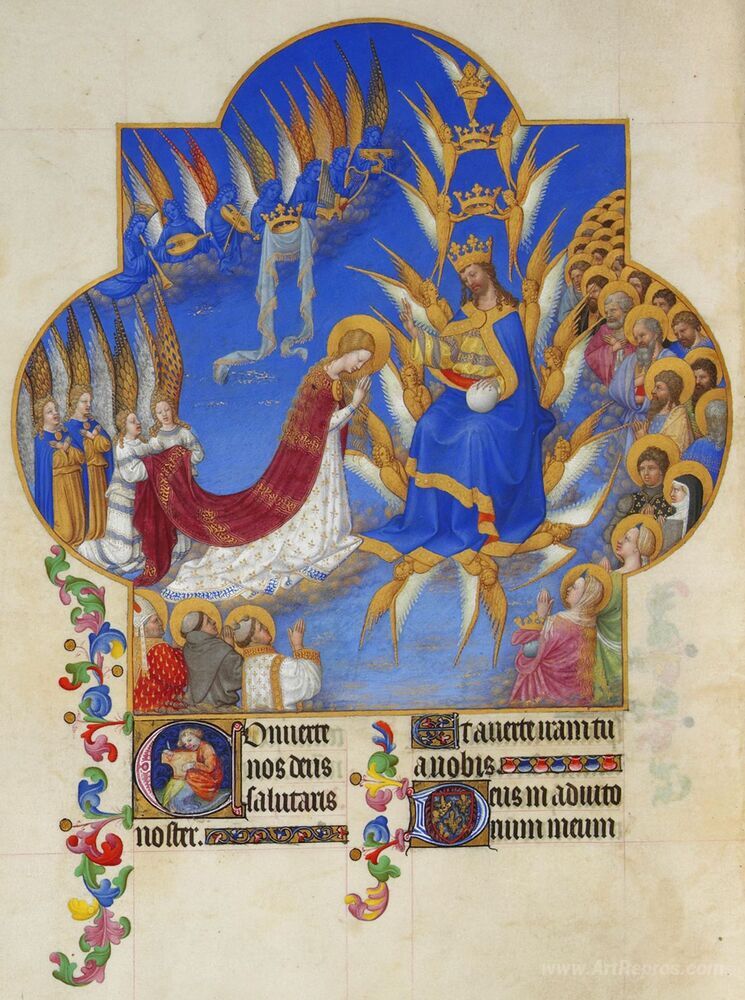 Conuerte
nos deus
salutaris
noster.
Et auerte iram tu
a nobis.
Deus in adiuto
rium meum
www.ArtRepros.com